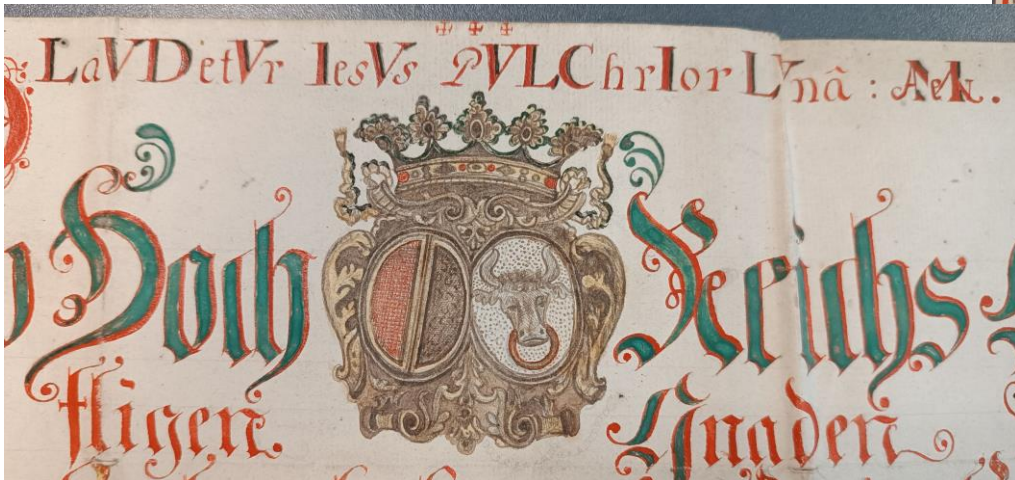 LaVDetVr IesVs PVLChrIor LVnâ :
Hoch Reichs
fligen. Gnaden